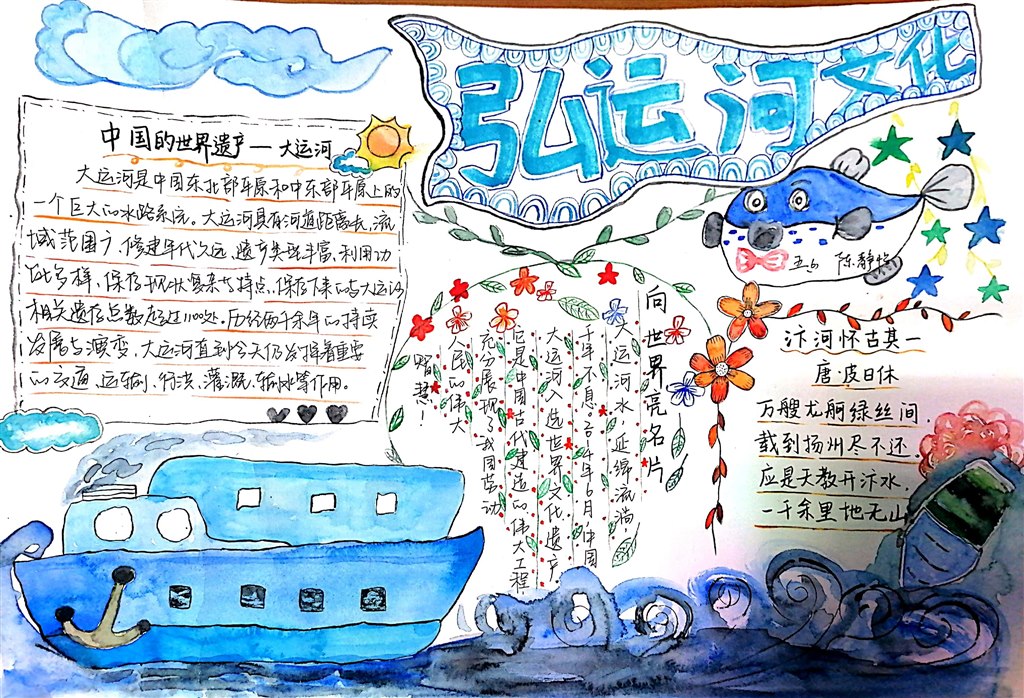 弘运河文化
中国的世界遗产—大运河
大运河是中国东北部平原和中东部平原上的
一个巨大的水路系统。大运河具有河道距离长、流
域范围广、修建年代久远、遗产类型丰富、利用功
能多样、保存现状复杂等特点，保存下来的与大运河
相关遗存点数超过1100处，历经两千余年的持续
发展与演变，大运河直到今天仍发挥着重要
的交通、运输、行洪、灌溉、输水等作用。
向世界亮名片
大运河水，延绵流淌
千年不息。2014年6月中国
大运河入选世界文化遗产。
它是中国古代建造的伟大工程
充分展现了我国劳动
人民的伟大
智慧！
五6 陈静
汴河怀古其一
唐·皮日休
万艘龙舸绿丝间
载到扬州尽不还.
应是天教开汴水.
一千余里地无山